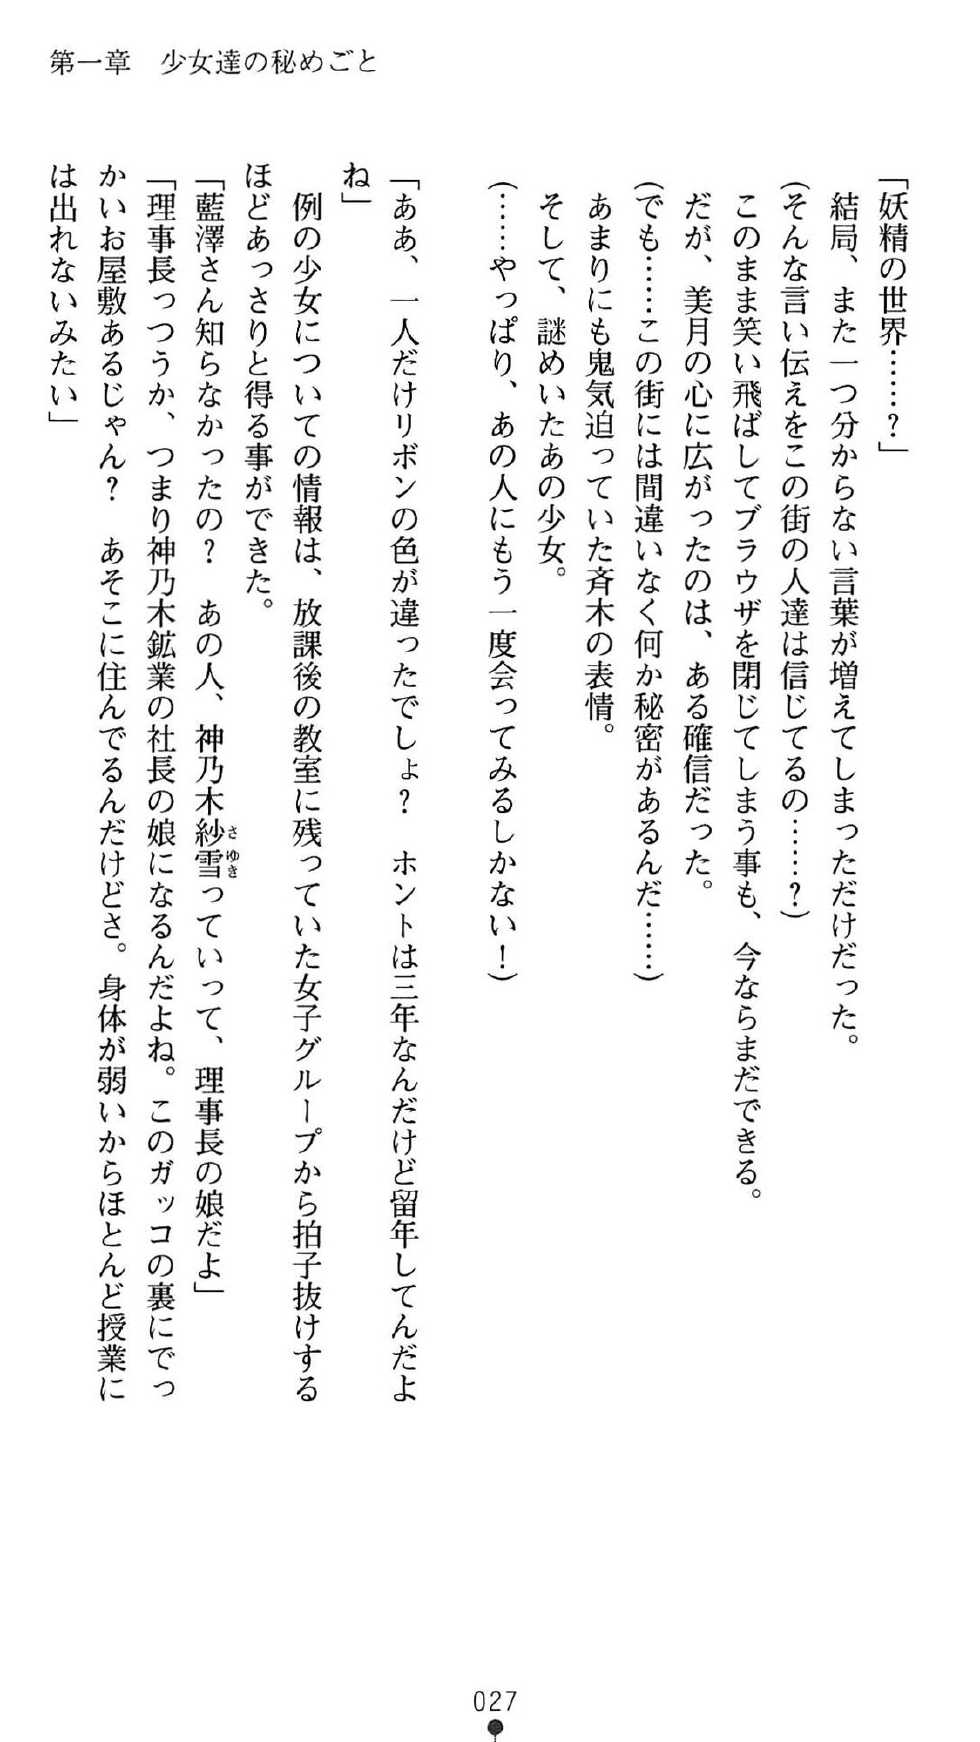 第一章　少女達の秘めごと
「妖精の世界……？」
　結局、また一つ分からない言葉が増えてしまっただけだった。
（そんな言い伝えをこの街の人達は信じてるの……？）
　このまま笑い飛ばしてブラウザを閉じてしまう事も、今ならまだできる。
　だが、美月の心に広がったのは、ある確信だった。
（でも……この街には間違いなく何か秘密があるんだ……）
　あまりにも鬼気迫っていた斉木の表情。
　そして、謎めいたあの少女。
（……やっぱり、あの人にもう一度会ってみるしかない！）
「ああ、一人だけリボンの色が違ったでしょ？　ホントは三年なんだけど留年してんだよ
ね」
　例の少女についての情報は、放課後の教室に残っていた女子グループから拍子抜けする
ほどあっさりと得る事ができた。
「藍澤さん知らなかったの？　あの人、神乃木紗雪っていって、理事長の娘だよ」
さ　ゆき
「理事長っつうか、つまり神乃木鉱業の社長の娘になるんだよね。このガッコの裏にでっ
かいお屋敷あるじゃん？　あそこに住んでるんだけどさ。身体が弱いからほとんど授業に
は出れないみたい」
027